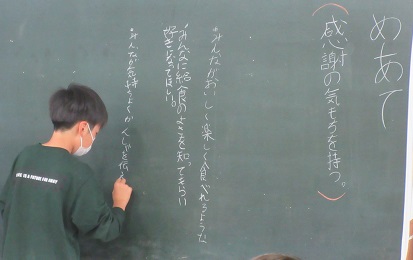 めあて
(感謝の気もちを持つ。)
*みんながおいしく楽しく食べれるような
*みんなに給食のよさを知ってもらい
好きになってほしい。
*みんなが気持ちよく